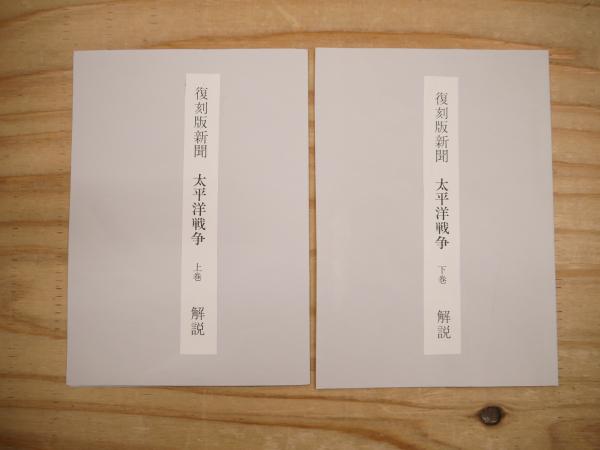 復刻版新聞 太平洋戦争 上巻 解説
復刻版新聞 太平洋戦争 下巻 解説